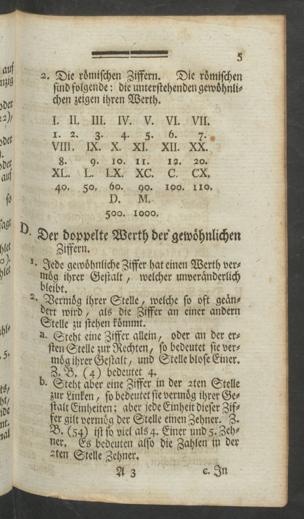 5
2. Die römischen Ziffern. Die römischen
sind folgende: die unterstehenden gewöhnli-
chen zeigen ihren Werth.
I. II. III. IV. V. VI. VII.
1. 2. 3. 4. 5. 6. 7.
VIII. IX. X. XI. XII. XX.
8. 9. 10. 11. 12. 20.
XL. L. LX. XC. C. CX.
40. 50. 60. 90. 100. 110.
D. M.
500. 1000.
D. Der doppelte Werth der gewöhnlichen
Ziffern.
1. Jede gewöhnliche Ziffer hat einen Werth ver-
mög ihrer Gestalt, welcher unveränderlich
bleibt.
2. Vermög ihrer Stelle, welche so oft geän-
dert wird, als die Ziffer an einer andern
Stelle zu stehen kömmt.
a. Steht eine Ziffer allein, oder an der er-
sten Stelle zur Rechten, so bedeutet sie ver-
mög ihrer Gestalt, und Stelle blose Einer.
Z. B. (4) bedeutet 4.
b. Steht aber eine Ziffer in der 2ten Stelle
zur Linken, so bedeutet sie vermög ihrer Ge-
stalt Einheiten: aber jede Einheit dieser Zif-
fer gilt vermög der Stelle einen Zehner. Z.
B. (54) ist so viel als 4. Einer und 5. Zeh-
ner. Es bedeuten also die Zahlen in der
2ten Stelle Zehner.
A 3 c. In